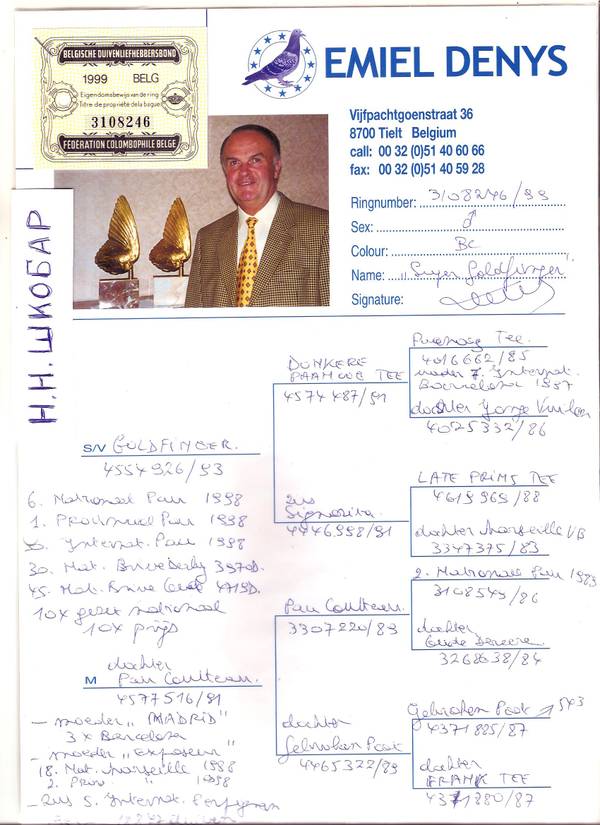 BELGISCHE DUIVENLIEFHEBBERSBOND
1999 BELG
Eigendomsbewijs van de ring
Titre de propriété de la bague
3108246
FÉDÉRATION COLOMBOPHILE BELGE
EMIEL DENYS
Vijfpachtgoenstraat 36
8700 Tielt Belgium
call: 00 32 (0)51 40 60 66
fax: 00 32 (0)51 40 59 28
Ringnumber: 3108246/99
Sex: ♂
Colour: BC
Name: "Super Goldfinger"
Signature:
Н.Н. ШКОБАР
S/V GOLDFINGER.
4554926/93
6. Nationaal Pau 1998
1. Provinciaal Pau 1998
Internat. Pau 1998
30. Nat. Brive
45. Nat. Brive 4719D.
10x nationaal
10x prijs
dochter
M Pau Coulteau.
4577516/91
- moeder "MADRID"
3 x Barcelona
- moeder "Exposeur"
18. Nat. Marseille 1998
2. Prov. " 1998
- zus 5. Internat. Perpignan
DONKERE
TEE
4574487/91
zus
Signorita
4446998/91
Pau Coulteau.
3307220/89
dochter
Gebroken Poot
4465322/89
Tee.
4016662/85
vader 7. Internat.
Barcelona
dochter Jonge
4025332/86
LATE PRIMS TEE
4619969/88
dochter Marseille VB
3347375/83
2. Nationaal Pau 1989
3108549/86
dochter
Oude
3268638/84
Gebroken Poot → 543
4371825/87
dochter
FRANK TEE
4371880/87